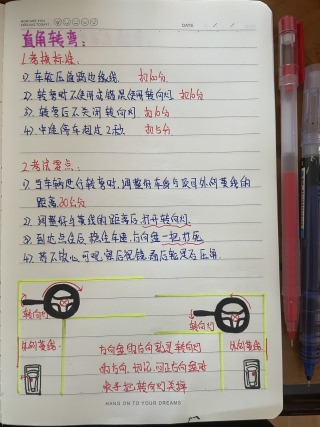 DATE
直角转弯:
1.考核标准:
1). 车轮压道路边缘线. 扣100分
2). 转弯时不使用或错误使用转向灯 扣10分
3). 转弯后不关闭转向灯 扣10分
4). 中途停车超过2秒 扣5分
2.考试要点:
1). 当车辆进行转弯时,调整好车身与及可外侧基线的
距离30公分
2). 调整好与基线的距离后打开转向灯.
3). 到达点位后 稳住车速,方向盘一把打死
4). 若不放心,可观察后视镜,看后轮是否压角.
转向灯
转向灯
外侧基线.
方向盘的方向就是转向灯
外侧基线.
的方向. 切记,回正方向盘时
HANG ON TO YOUR DREAMS